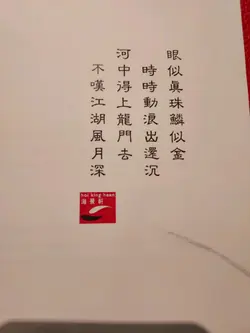 眼似真珠鱗似金
時時動浪出還沉
河中得上龍門去
不嘆江湖風月深
hoi king heen
海景軒